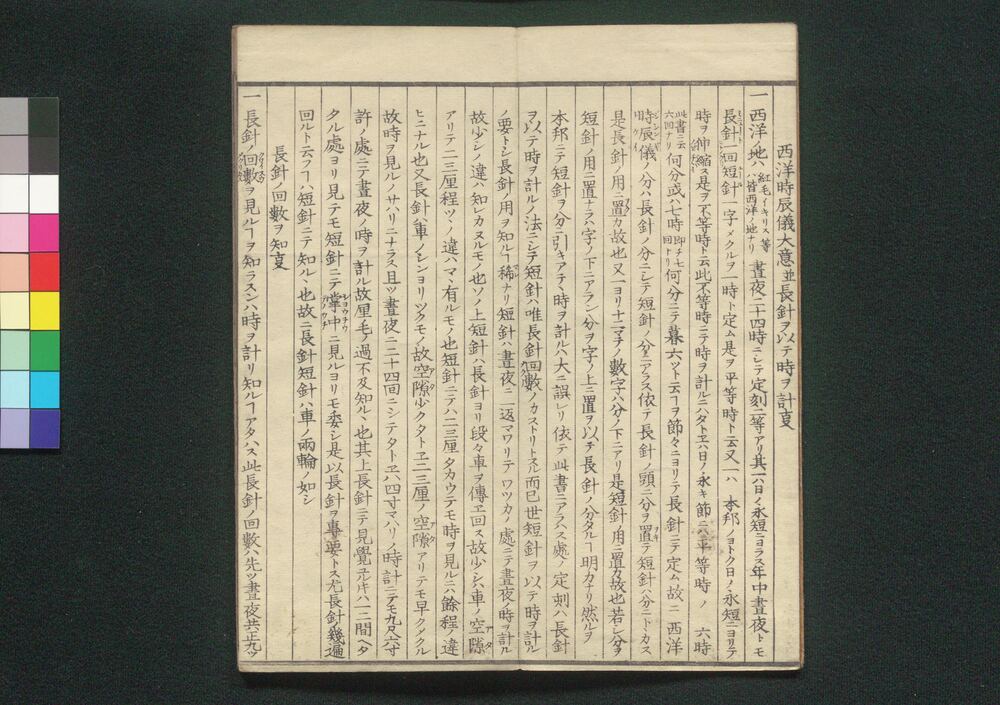 西洋時辰儀大意並長針ヲ以テ時ヲ計ル夏
一西洋ノ地ハ紅毛イキリス等ハ皆西洋ノ地ナリ晝夜二十四時ニシテ定刻二等アリ其一ハ日ノ永短ニヨラス年中晝夜トモ
長針一回短針一字メクルヲ一時ト定ム是ヲ平等時ト云又一ハ本邦ノヨトク日ノ永短ニヨリテ
時ヲ伸縮ス是ヲ不等時ト云此不等時ニテ時ヲ計ルニハタトヱハ日ノ永キ節ニハ平等時ノ六時
此書ニ云六回ナリ何分或ハ七時即チ七回トリ何分ニテ暮六ツト云フヲ節々ニヨリテ長針ニテ定ム故ニ西洋
時辰儀ノ分ハ長針ノ分ニシテ短針ノ分ニアラス依テ長針ノ頭ニ分ヲ置テ短針ハ分ニトカス
是長針ノ用ニ置カ故也又一ヨリ十二マテノ數字六分ノ下ニアリ是短針ノ用ニ置カ故也若シ分ヲ
短針ノ用ニ置ナラハ字ノ下ニアラン分ヲ字ノ上ニ置ヲ以テ長針ノ分タルヿ明カナリ然ルヲ
本邦ニテ短針ヲ分ニ引キアテヽ時ヲ計ルハ大ニ誤レリ依テ此書ニアラハス處ノ定刻ハ長針
ヲ以テ時ヲ計ルノ法ニシテ短針ハ唯長針回數ノカストリトスル而已世短針ヲ以テ時ヲ計ル
ノ要トシ長針ノ用ヲ知ルヿ稀ナリ短針ハ晝夜ニ二返マワリテワツカノ處ニテ晝夜ノ時ヲ計ル
故少シノ違ハ知レカヌルモノ也ソノ上短針ハ長針ヨリ段々車ヲ傳ヱ回ス故少シハ車ノ空隙
アリテ二三厘程ツヽノ違ハマヽ有ルモノ也短針ニテハ二三厘タカウテモ時ヲ見ルニハ餘程ノ違
ヒニナル也又長針ハ車ノシンヨリツクモノ故空隙少クタトヱ二三厘ノ空隙アリテモ早クメクル
故時ヲ見ルノサハリニナラス且ツ晝夜ニ二十四回ニシテタトヱハ四寸マハリノ時計ニテモ九尺六寸
許ノ處ニテ晝夜ノ時ヲ計ル故厘毛ノ過不及知ルヽ也其上長針ニテ見覺ユルキハ一二間ヘタ
タル處ヨリ見テモ短針ニテ掌中ニ見ルヨリモ委シ是以長針ヲ專要トス尤長針幾遍
回ルト云フヿハ短針ニテ知ルヽ也故ニ長針短針ハ車ノ兩輪ノ如シ
長針ノ回數ヲ知夏
一長針ノ回數ヲ見ルヿヲ知ラスンハ時ヲ計リ知ルヿアタハス此長針ノ回數ハ先ツ晝夜共正九ツ